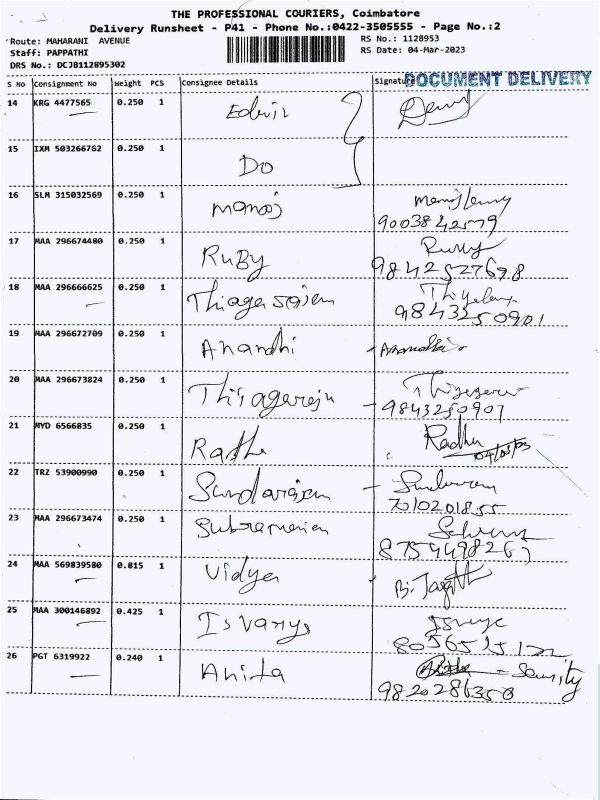 THE PROFESSIONAL COURIERS, Coimbatore
Delivery Runsheet - P41 - Phone No.:0422-3505555 - Page No.:2
Route: MAHARANI AVENUE
Staff: PAPPATHI
DRS No.: DCJB112895302
RS No.: 1128953
RS Date: 04-Mar-2023
S No Consignment No Weight PCS Consignee Details Signature
DOCUMENT DELIVERY
14 KRG 4477565 0.250 1 Edwin
15 IXM 503266762 0.250 1 Do
16 SLM 315032569 0.250 1 Manoj
9003842579
17 MAA 296674480 0.250 1 RuBy Ruby
9842527698
18 MAA 296666625 0.250 1 Thiagarajan
9843250901
19 MAA 296672709 0.250 1 Anandhi
20 MAA 296673824 0.250 1 Thiagaraju
9843250901
21 MYD 6566835 0.250 1 Radha Radha
22 TRZ 53900990 0.250 1 Sundarajan
7010201855
23 MAA 296673474 0.250 1 Subramanian
8754498267
24 MAA 569839580 0.815 1 Vidya
25 MAA 300146892 0.425 1 Isvarya
26 PGT 6319922 0.240 1 Anita - Security
9820286350